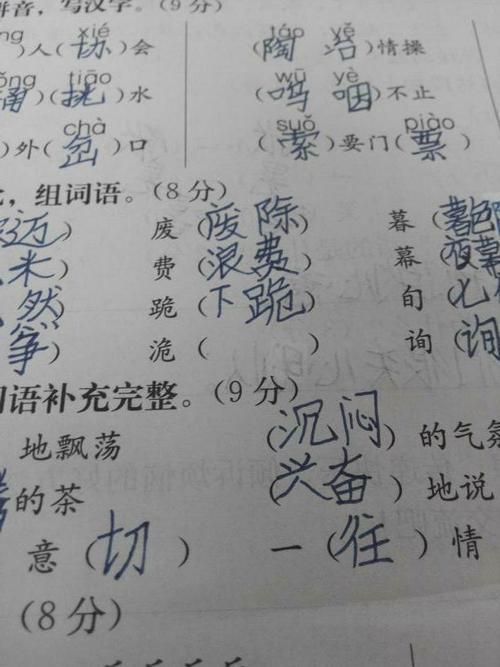 拼音，写汉字。(9分)
xié táo yě
人(协)会 (陶冶)情操
tiāo wū yè
(挑)水 (呜咽)不止
chà suǒ piào
)外(岔)口 (索)要门(票)
，组词语。(8分)
迈) 废(废除 暮(暮色
米) 费(浪费) 幕(夜幕
然) 跪(下跪) 旬(七旬
筝) 诡( ) 询(询
词语补充完整。(9分)
地飘荡 (沉闷)的气氛
的茶 (兴奋)地说
意(切) 一(往)情
(8分)